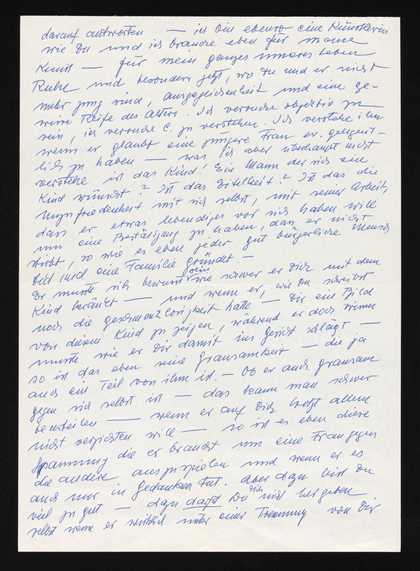 darauf antworten — ich bin ebenso eine Künstlerin
wie Du und ich brauche eben für meine
Kunst — für mein ganzes inneres Leben
Ruhe und besonders jetzt, wo Du und er nicht
mehr jung sind, ausgeglichenheit und eine ge-
wisse Reife des Alters. Ich versuche objektiv zu
sein, ich versuche C. zu verstehen. Ich verstehe ihn
wenn er glaubt eine jüngere Frau er. gelegent-
lich zu haben — was ich aber überhaupt nicht
verstehe ist das Kind! Ein Mann der sich ein
Kind wünscht? Ist das Eitelkeit? Ist das die
Unzufriedenheit mit sich selbst, mit seiner Arbeit,
dass er etwas lebendiges vor sich haben will
um eine Bestätigung zu haben, dass er nicht
stirbt, so wie es eben jeder gut bürgerliche Mensch
tut und eine Familie gründet —
Er musste sich bewusst sein wie schwer er Dich mit dem
Kind kränkt — und wenn er, wie Du schreibst
noch die geschmacklosigkeit hatte — Dir ein Bild
von diesem Kind zu zeigen, während er doch wissen
musste wie er Dir damit ins Gesicht schlägt —
so ist das eben seine Grausamkeit — die ja
auch ein Teil von ihm ist. — Ob er auch grausam
gegen sich selbst ist — das kann man schwer
beurteilen — wenn er auf Dich trotz allem
nicht verzichten will — so ist es eben diese
Spannung die er braucht um eine Frau gegen
die andere auszuspielen und wenn er es
auch nur in Gedanken tut. Aber dazu bist Du
viel zu gut — dazu darfst Du Dich nicht hergeben
selbst wenn er unter einer Trennung von Dir